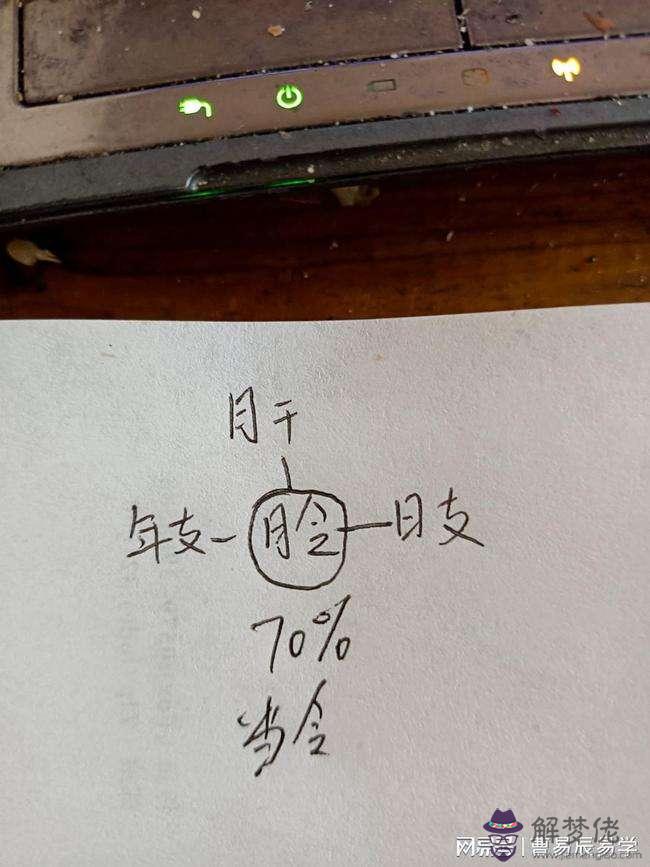 月干
年支 月令 日支
70%
当令
解梦佬
网易号 | 曹易辰易学